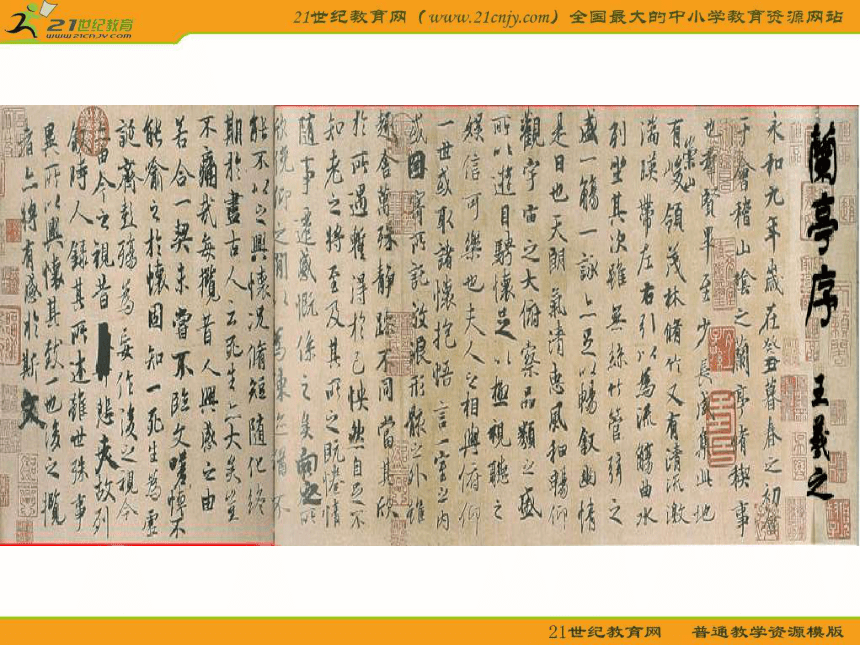 21世纪教育网
www.21cnjy.com
21世纪教育网（www.21cnjy.com）全国最大的中小学教育资源网站
蘭亭序 王羲之
永和九年歲在癸丑暮春之初會
于會稽山陰之蘭亭脩稧事
也羣賢畢至少長咸集此地
有崇山峻領茂林脩竹又有清流激
湍暎帶左右引以為流觴曲水
列坐其次雖無絲竹管弦之
盛一觴一詠亦足以暢敘幽情
是日也天朗氣清惠風和暢仰
觀宇宙之大俯察品類之盛
所以遊目騁懷足以極視聽之
娛信可樂也夫人之相與俯仰
一世或取諸懷抱悟言一室之內
或因寄所託放浪形骸之外雖
趣舍萬殊靜躁不同當其欣
於所遇蹔得於己怏然自足不
知老之將至及其所之既惓情
隨事遷感慨係之矣向之所
欣俛仰之閒以為陳迹猶不
能不以之興懷況脩短隨化終
期於盡古人云死生亦大矣豈
不痛哉每攬昔人興感之由
若合一契未嘗不臨文嗟悼不
能喻之於懷固知一死生為虛
誕齊彭殤為妄作後之視今
亦由今之視昔悲夫故列
敘時人錄其所述雖世殊事
異所以興懷其致一也後之攬
者亦將有感於斯文
21世纪教育网 普通教学资源模版